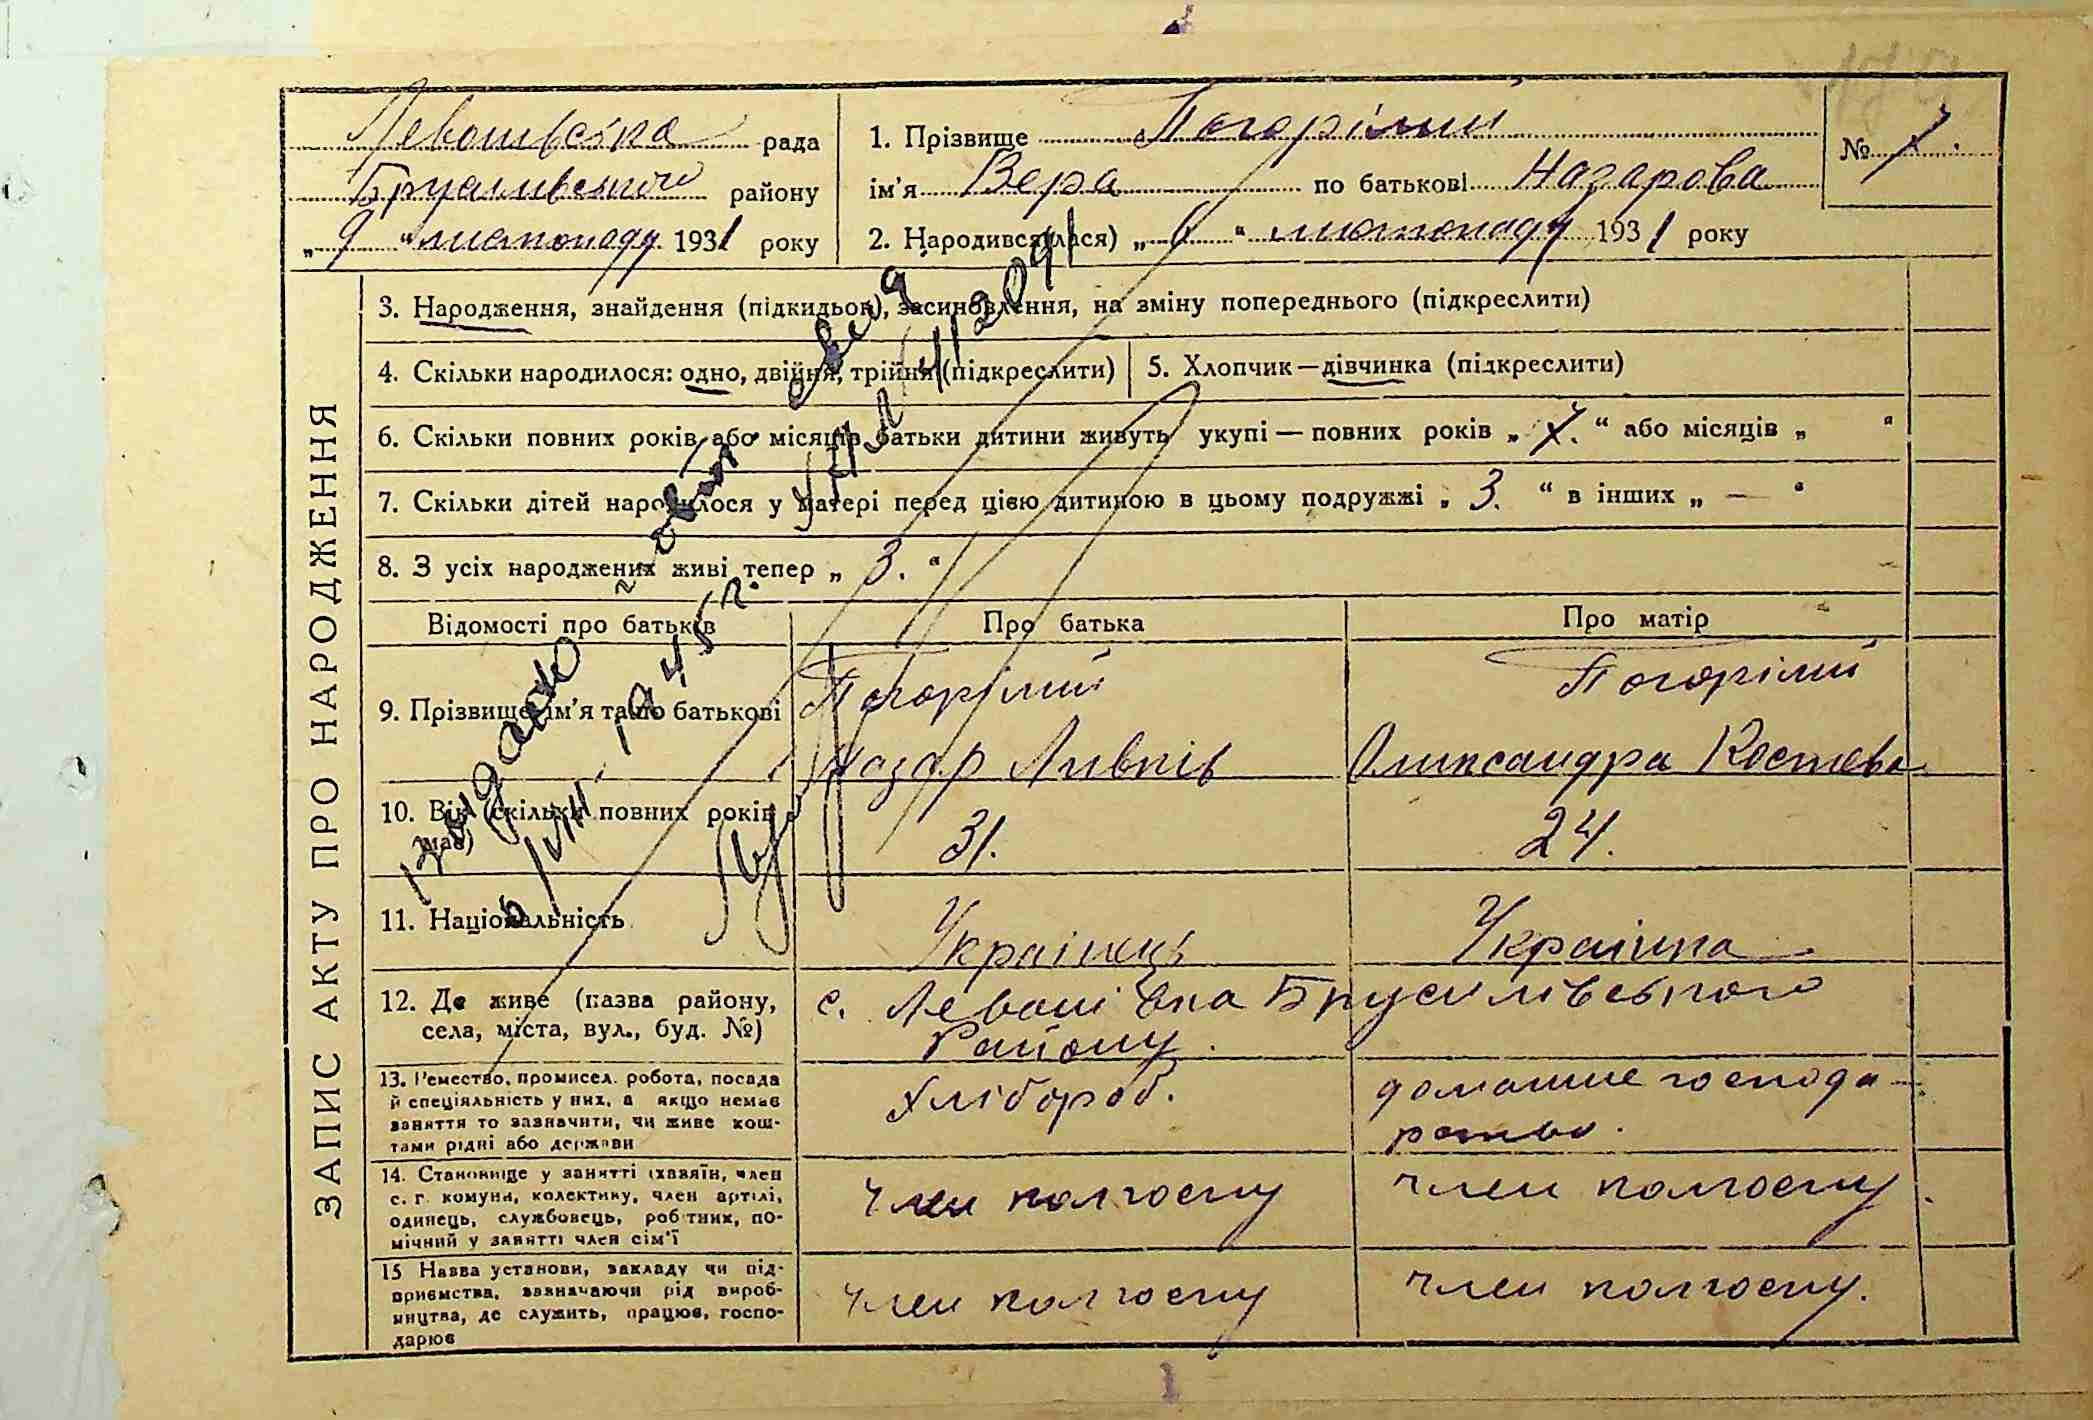 Левашівска рада
Брусилівського району
„ 9 “ листопаду 1931 року
1. Прізвище Погорілий
ім’я Вера по батькові Назарова
№ 7.
2. Народився(лася) „ 6 “ листопаду 1931 року
ЗАПИС АКТУ ПРО НАРОДЖЕННЯ
3. Народження, знайдення (підкидьок), засиновлення, на зміну попереднього (підкреслити)
4. Скільки народилося: одно, двійня, трійня (підкреслити)
5. Хлопчик—дівчинка (підкреслити)
6. Скільки повних років або місяців батьки дитини живуть укупі — повних років „ 7. “ або місяців „ “
7. Скільки дітей народилося у матері перед цією дитиною в цьому подружжі „ 3. “ в інших „ — “
8. З усіх народжених живі тепер „ 3. “
Відомості про батьків
Про батька
Про матір
9. Прізвище, ім’я та по батькові
Погорілий
Назар
Погорілий
Олександра Костева
10. Вік (скільки повних років має)
31.
24.
11. Національність
Украінець
Украінка
12. Де живе (назва району,
села, міста, вул., буд. №)
с. Левашівка Брусилівського
Району.
13. Ремество, промисел, робота, посада
й спеціяльність у них, а якщо немає
заняття то зазначити, чи живе кош-
тами рідні або держави
Хлібороб.
домашне господа-
рство.
14. Становище у занятті (хазяїн, член
с. г. комуни, колективу, член артілі,
одинець, службовець, робітник, по-
мічний у занятті член сім’ї
член колгоспу
член колгоспу.
15 Назва установи, закладу чи під-
приємства, зазначаючи рід вироб-
ництва, де служить, працює, госпо-
дарює
член колгоспу
член колгоспу.
видано
1945 г.